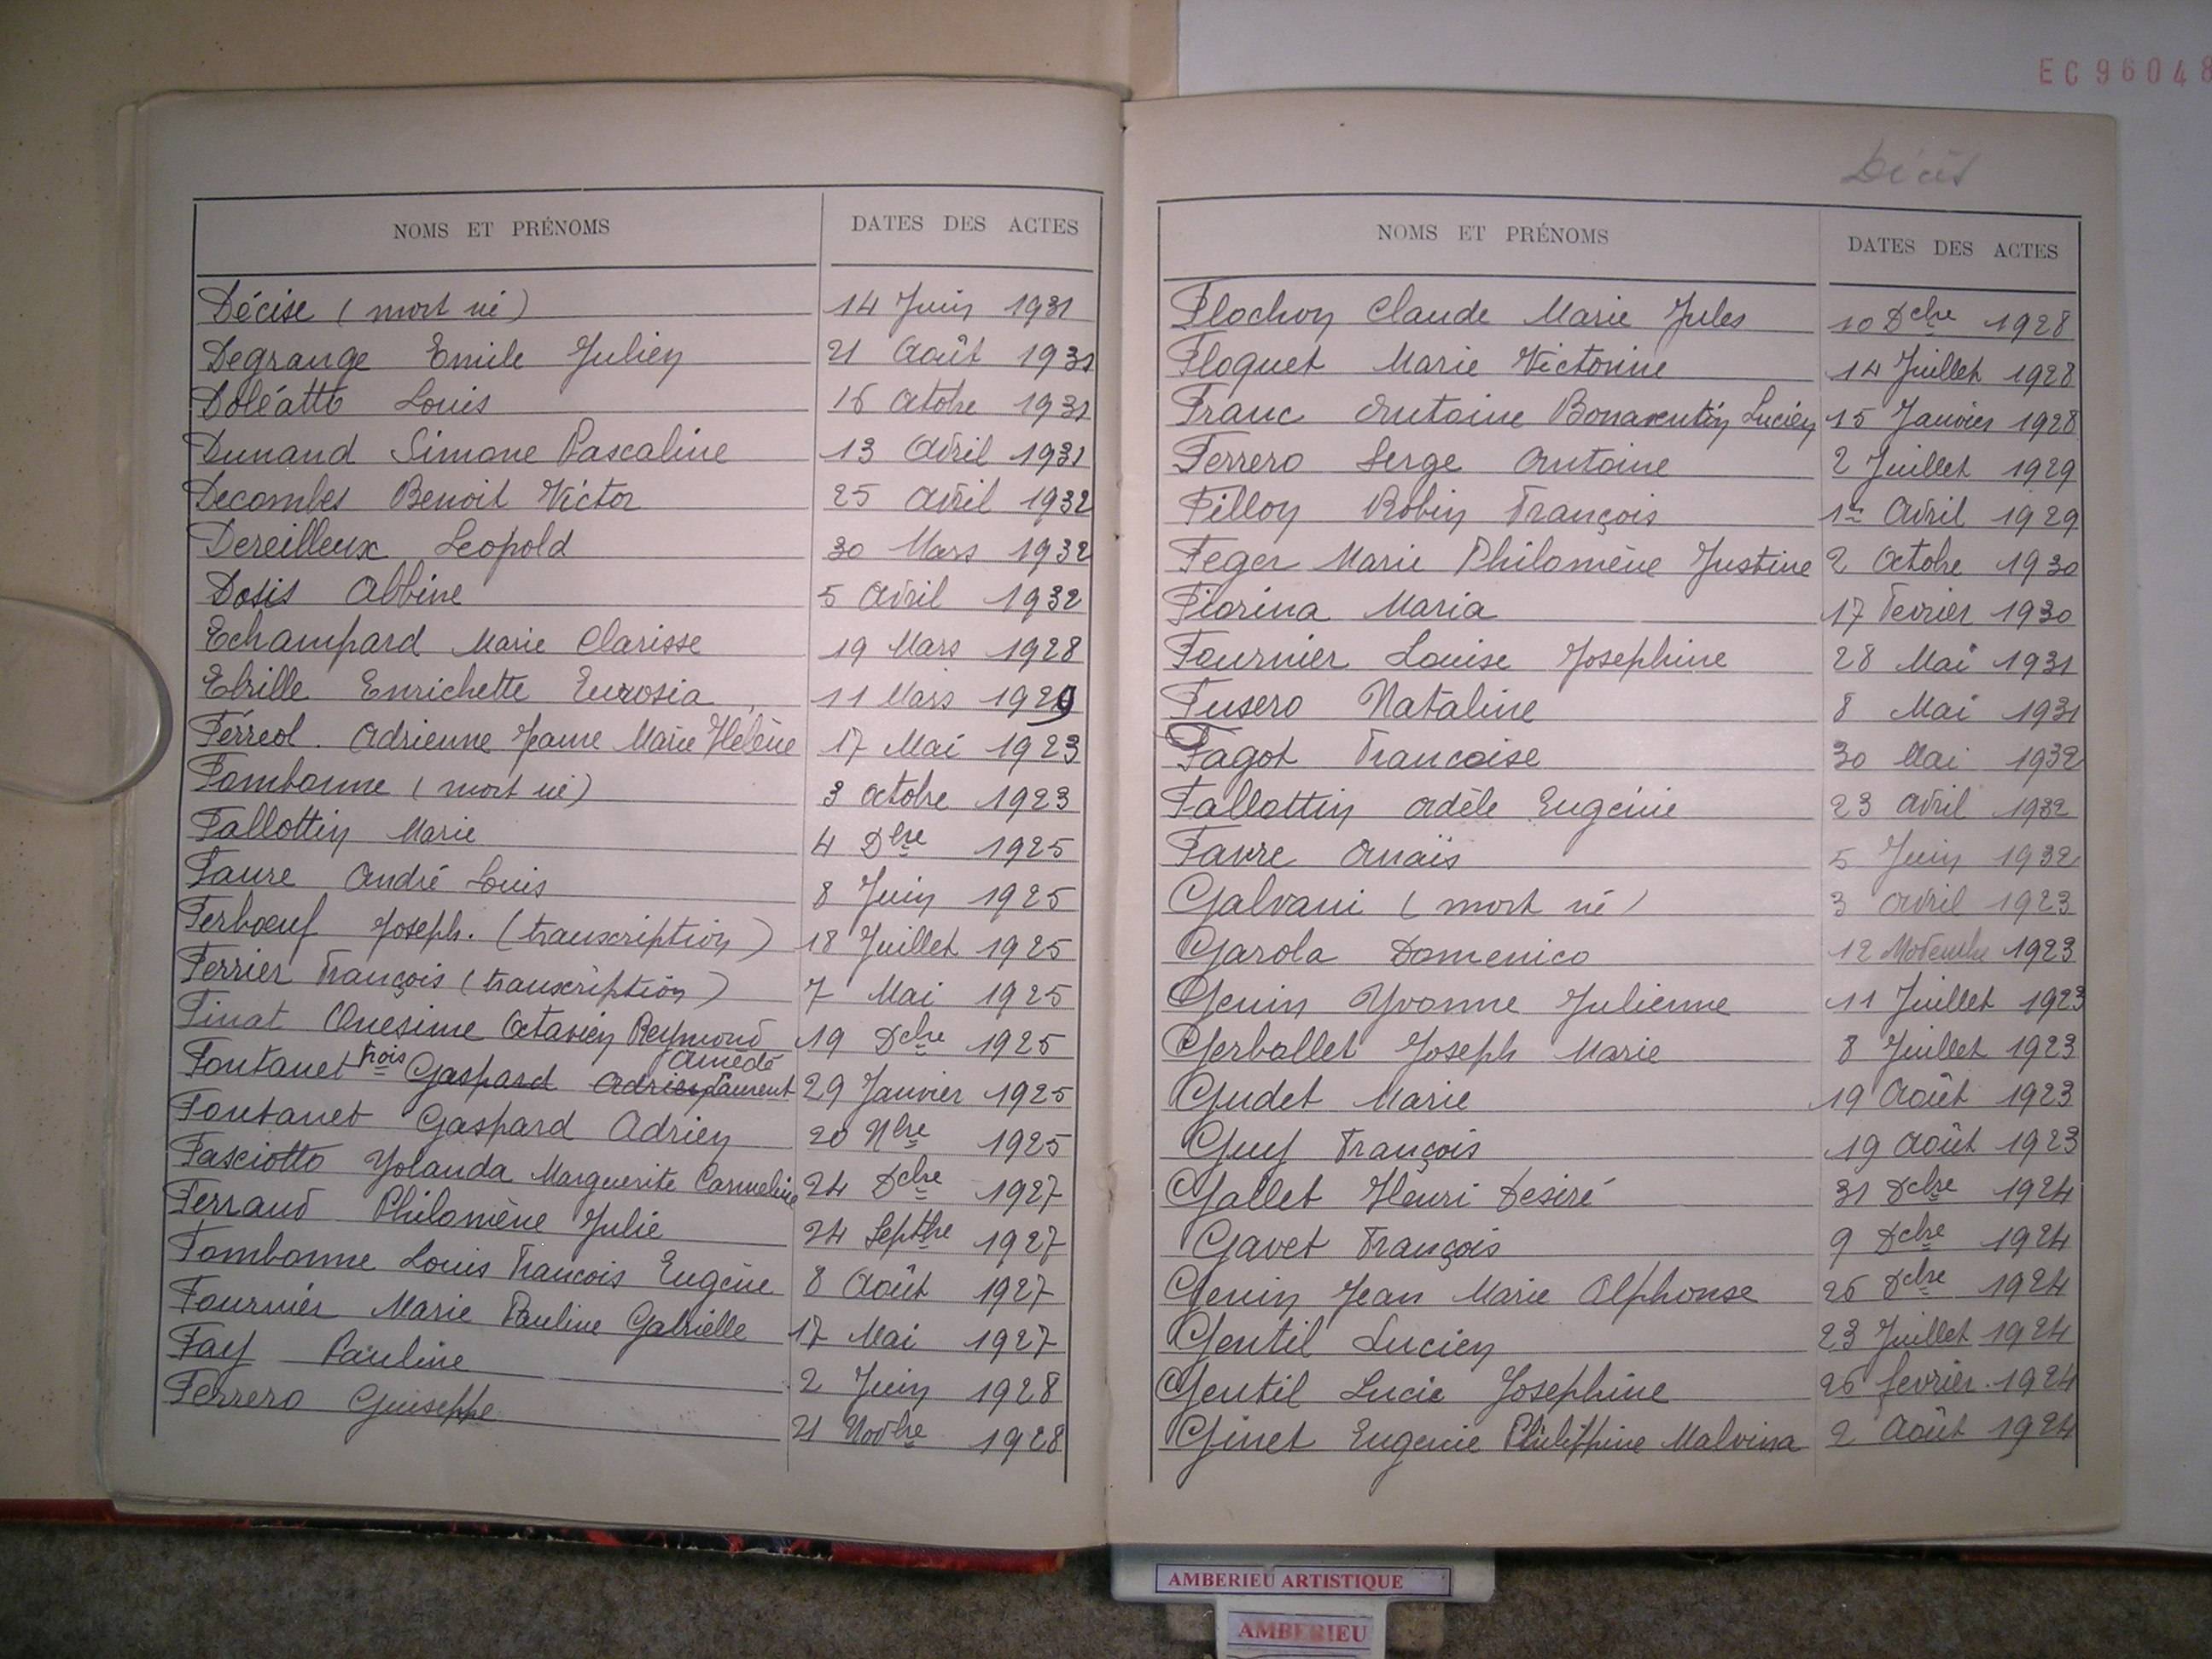 EC 96048
Décès
NOMS ET PRÉNOMS DATES DES ACTES
Décise (mort né) 14 Juin 1931
Degrange Emile Julien 21 Août 1931
Doléatto Louis 16 Octobre 1931
Dunand Simone Pascaline 13 Avril 1931
Decombes Benoit Victor 25 Avril 1932
Dereilleux Leopold 30 Mars 1932
Dosis Albine 5 Avril 1932
Echampard Marie Clarisse 19 Mars 1928
Ebrille Enrichette Eurosia 11 Mars 1929
Férréol. Adrienne Jeanne Marie Hélène 17 Mai 1923
Fombonne (mort né) 3 Octobre 1923
Fallottin Marie 4 Dbre 1925
Faure André Louis 8 Juin 1925
Ferbœuf Joseph. (transcription) 18 Juillet 1925
Ferrier François (transcription) 7 Mai 1925
Finat Onesime Octavien Reymond 19 Dcbre 1925
Fontanet frois Gaspard Adrien Laurent Amédé 29 Janvier 1925
Fontanet Gaspard Adrien 20 Nbre 1925
Fasciotto Yolanda Marguerite Carmeline 24 Dcbre 1927
Ferrand Philomène Julie 24 Septbre 1927
Fombonne Louis Francois Eugène 8 Août 1927
Fournier Marie Pauline Gabrielle 17 Mai 1927
Fay Pauline 2 Juin 1928
Ferrero Guiseppe 21 Novbre 1928
NOMS ET PRÉNOMS DATES DES ACTES
Flochon Claude Marie Jules 10 Dcbre 1928
Floquet Marie Victorine 14 Juillet 1928
Franc Antoine Bonaventin Lucien 15 Janvier 1928
Ferrero Serge Antoine 2 Juillet 1929
Fillon Robin François 1er Avril 1929
Feger Marie Philomène Justine 2 Octobre 1930
Fiorina Maria 17 Fevrier 1930
Fournier Louise Josephine 28 Mai 1931
Fusero Nataline 8 Mai 1931
Fagot Francoise 30 Mai 1932
Fallottin Adèle Eugénie 23 Avril 1932
Favre Anaïs 5 Juin 1932
Galvani (mort né) 3 Avril 1923
Garola Domenico 12 Novembre 1923
Genin Yvonne Julienne 11 Juillet 1923
Gerbollet Joseph Marie 8 Juillet 1923
Gudet Marie 19 Août 1923
Guy François 19 Août 1923
Gallet Henri Desiré 31 Dcbre 1924
Gavet François 9 Dcbre 1924
Genin Jean Marie Alphonse 26 Dcbre 1924
Gentil Lucien 23 Juillet 1924
Gentil Lucie Josephine 26 fevrier 1924
Ginet Eugenie Philippine Malvina 2 Août 1924
AMBERIEU ARTISTIQUE
AMBERIEU